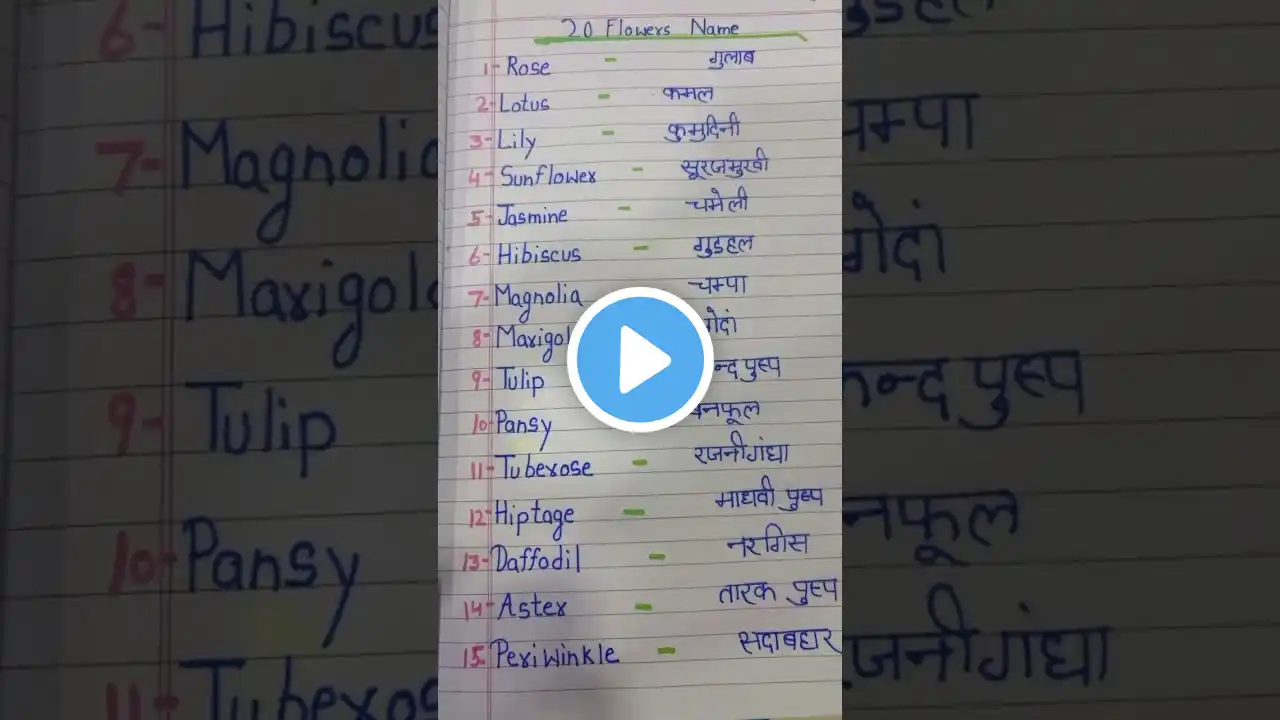 20 Flowers Name
1- Rose - गुलाब
2- Lotus - कमल
3- Lily - कुमुदिनी
4- Sunflower - सूरजमुखी
5- Jasmine - चमेली
6- Hibiscus - गुडहल
7- Magnolia चम्पा
8- Marigol गेदां
9- Tulip न्द पुष्प
10- Pansy बनफूल
11- Tuberose - रजनीगंधा
12- Hiptage - माधवी पुष्प
13- Daffodil - नरगिस
14- Aster - तारक पुष्प
15- Periwinkle - सदाबहार